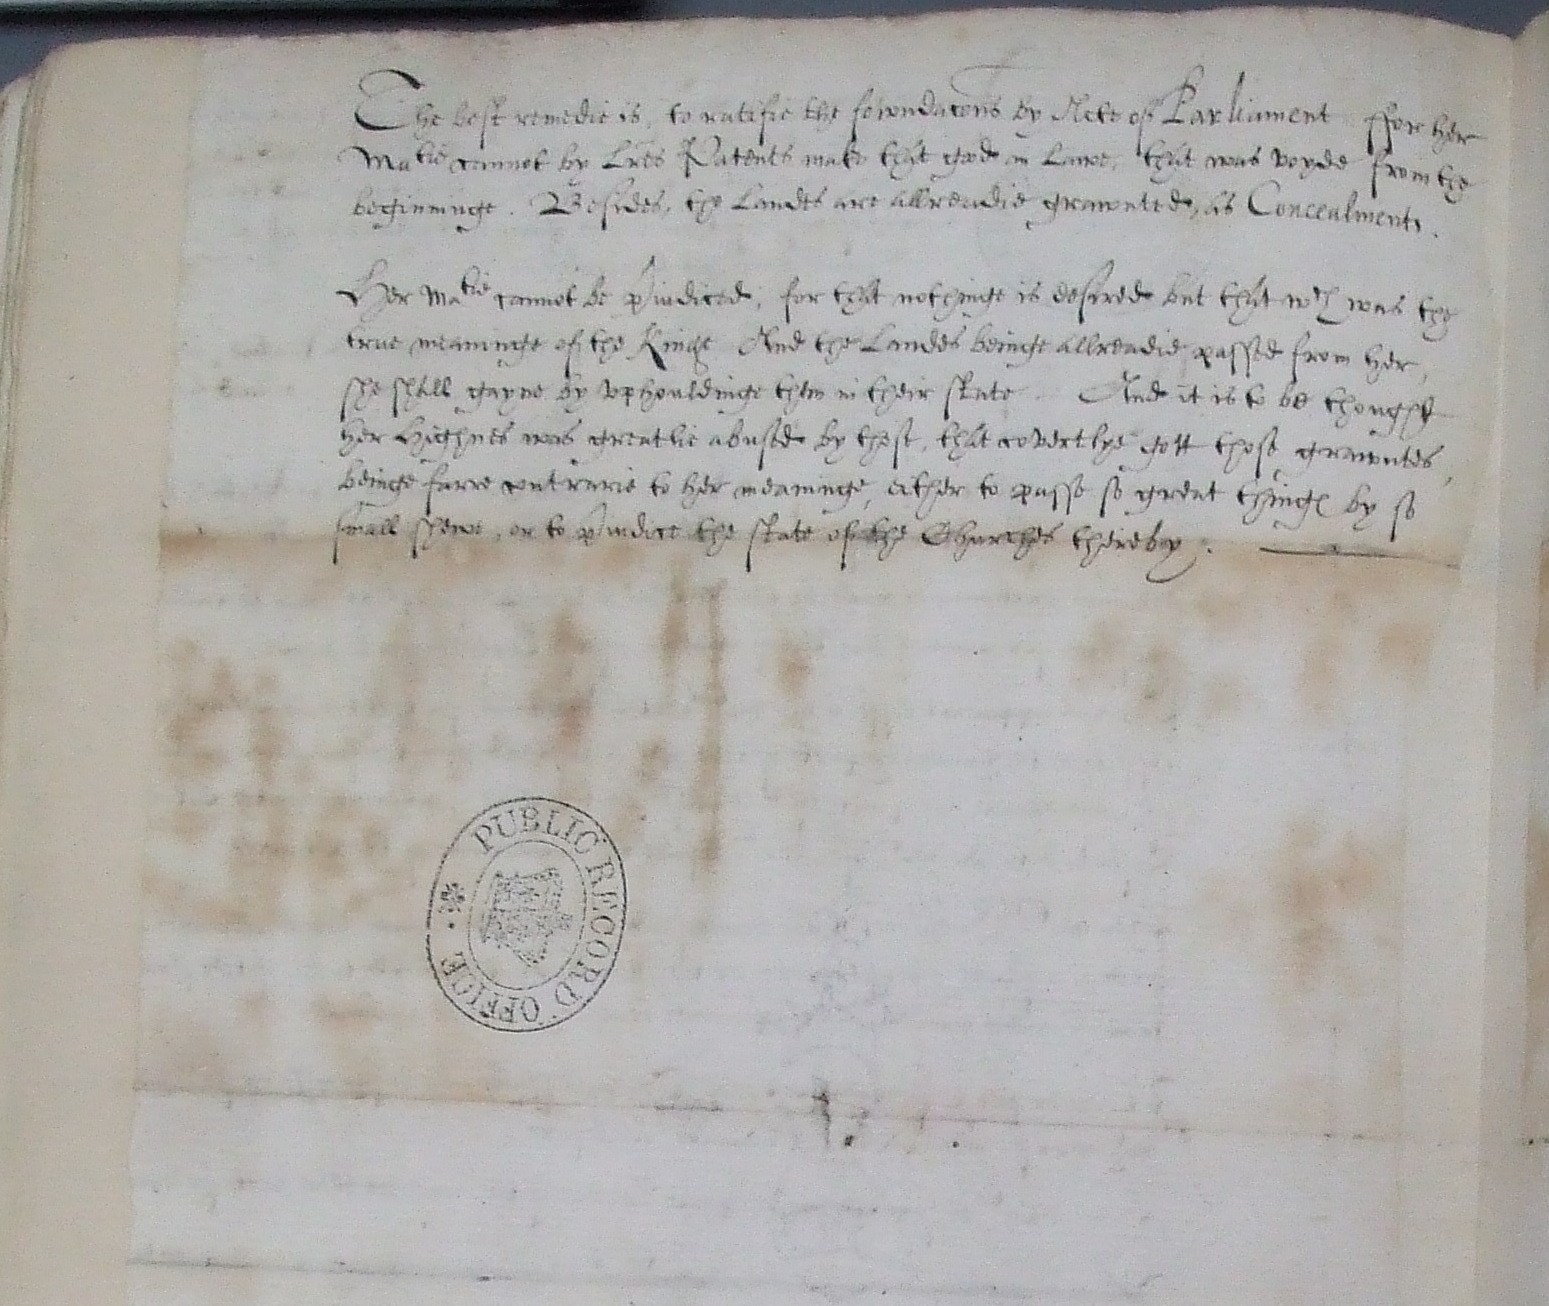 The best remedie is, to ratifie the fowndacons by Acte of Parliament ffor her
Matie cannot by Lres Patents make that good in Lawe, that was voyde from the
beginninge. Besides, the Landes are allreadie graunted, as Concealments.
Her Matie cannot be piudiced, for that nothinge is desired but that wch was the
true meaninge of the Kinge And the Landes beinge allreadie passed from her,
she shall gayne by vphouldinge them in their state And it is to be thought
her Highnes was greatlie abused by those, that covertlye gott those grauntes,
beinge farre contrarie to her meaninge, either to passe so great things by so
small shewe, or to piudice the state of the Churches thereby.
PUBLIC RECORD OFFICE